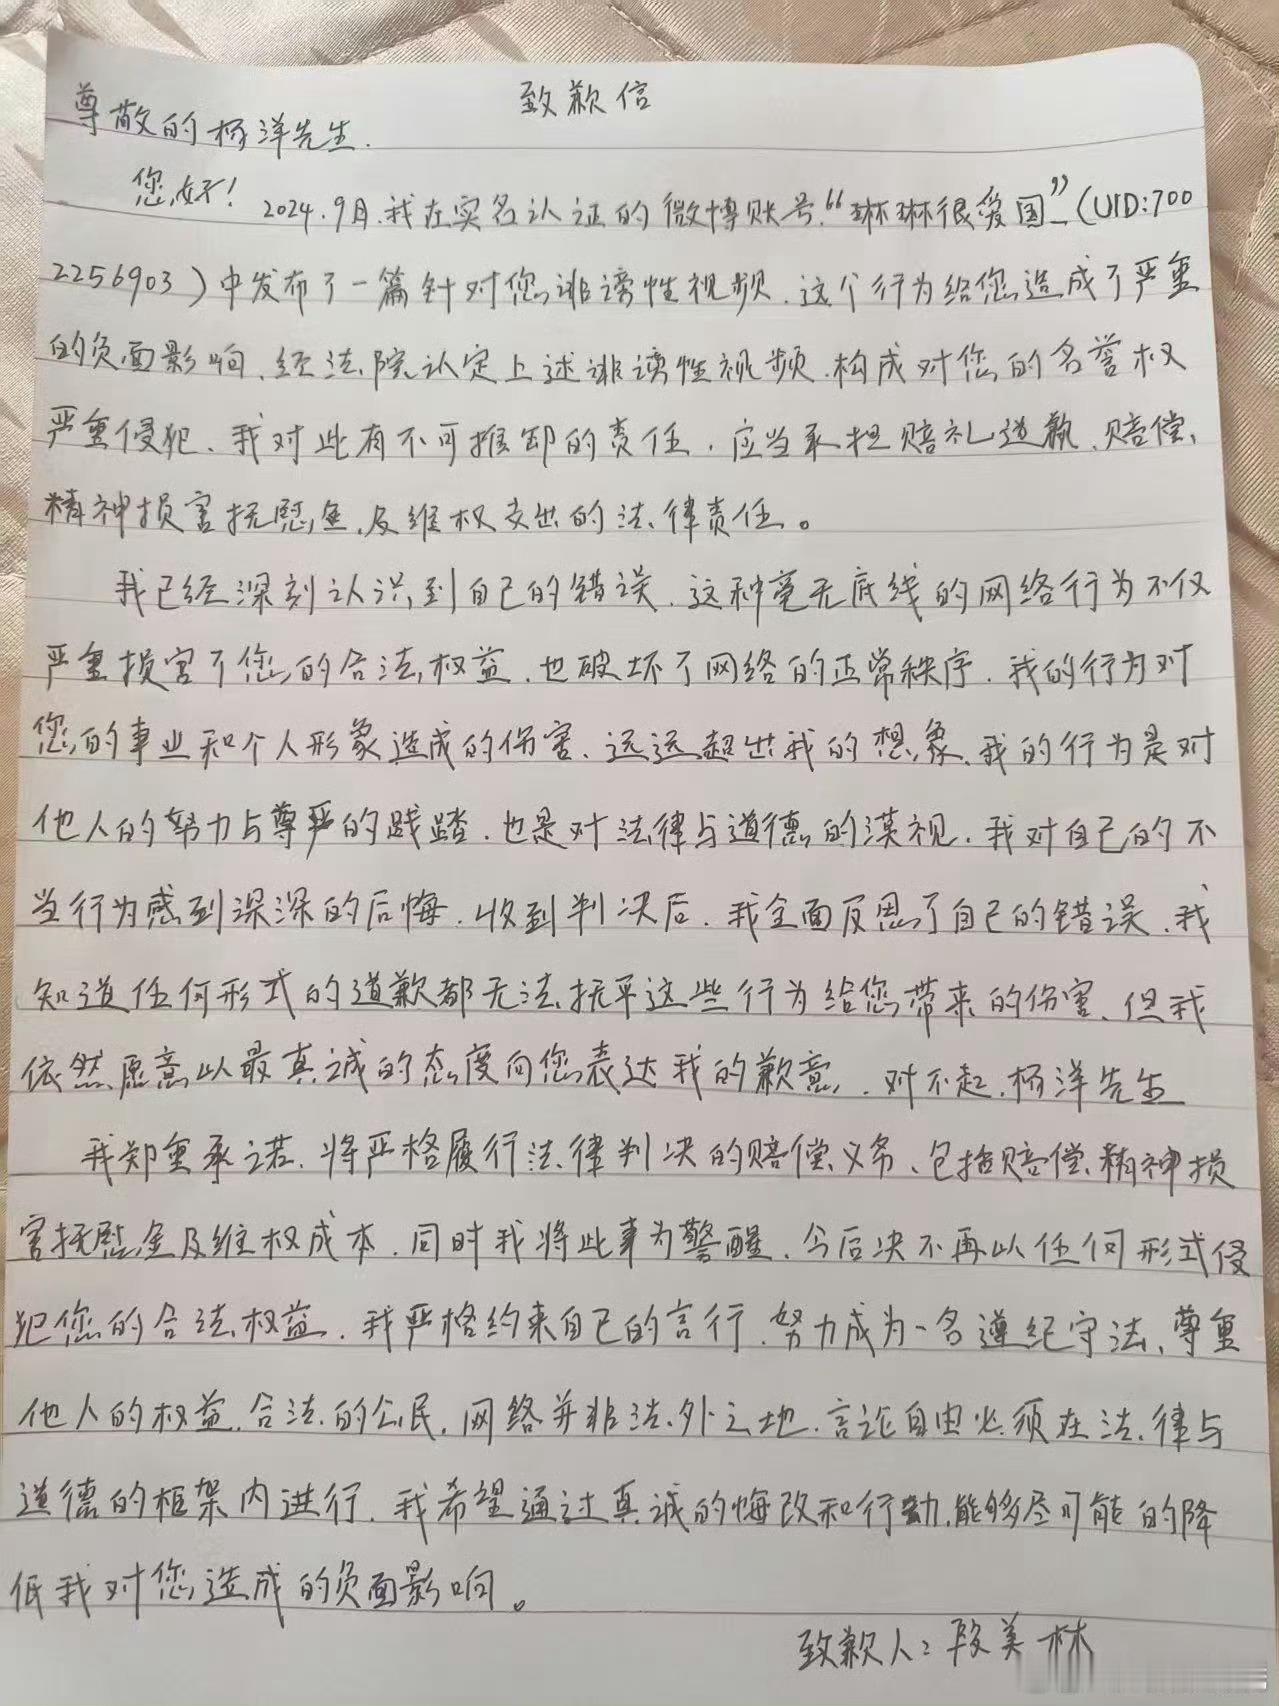 致歉信
尊敬的杨洋先生.
您好！2024.9月.我在实名认证的微博账号.“琳琳很爱国”(UID:700
2256903)中发布了一篇针对您诽谤性视频.这个行为给您造成了严重
的负面影响、经法院认定上述诽谤性视频.构成对您的名誉权
严重侵犯、我对此有不可推卸的责任.应当承担赔礼道歉、赔偿、
精神损害抚慰金、及维权支出的法律责任。
我已经深刻认识到自己的错误.这种毫无底线的网络行为不仅
严重损害了您的合法权益.也破坏了网络的正常秩序.我的行为对
您的事业和个人形象造成的伤害、远远超出我的想象、我的行为是对
他人的努力与尊严的践踏.也是对法律与道德的漠视.我对自己的不
当行为感到深深的后悔.收到判决后.我全面反思了自己的错误、我
知道任何形式的道歉都无法抚平这些行为给您带来的伤害、但我
依然愿意以最真诚的态度向您表达我的歉意.对不起.杨洋先生
我郑重承诺.将严格履行法律判决的赔偿义务、包括赔偿、精神损
害抚慰金及维权成本.同时我将此事为警醒、今后决不再以任何形式侵
犯您的合法权益.我严格约束自己的言行.努力成为一名遵纪守法、尊重
他人的权益.合法的公民.网络并非法外之地.言论自由必须在法律与
道德的框架内进行.我希望通过真诚的悔改和行动.能够尽可能的降
低我对您造成的负面影响。
致歉人：段美林